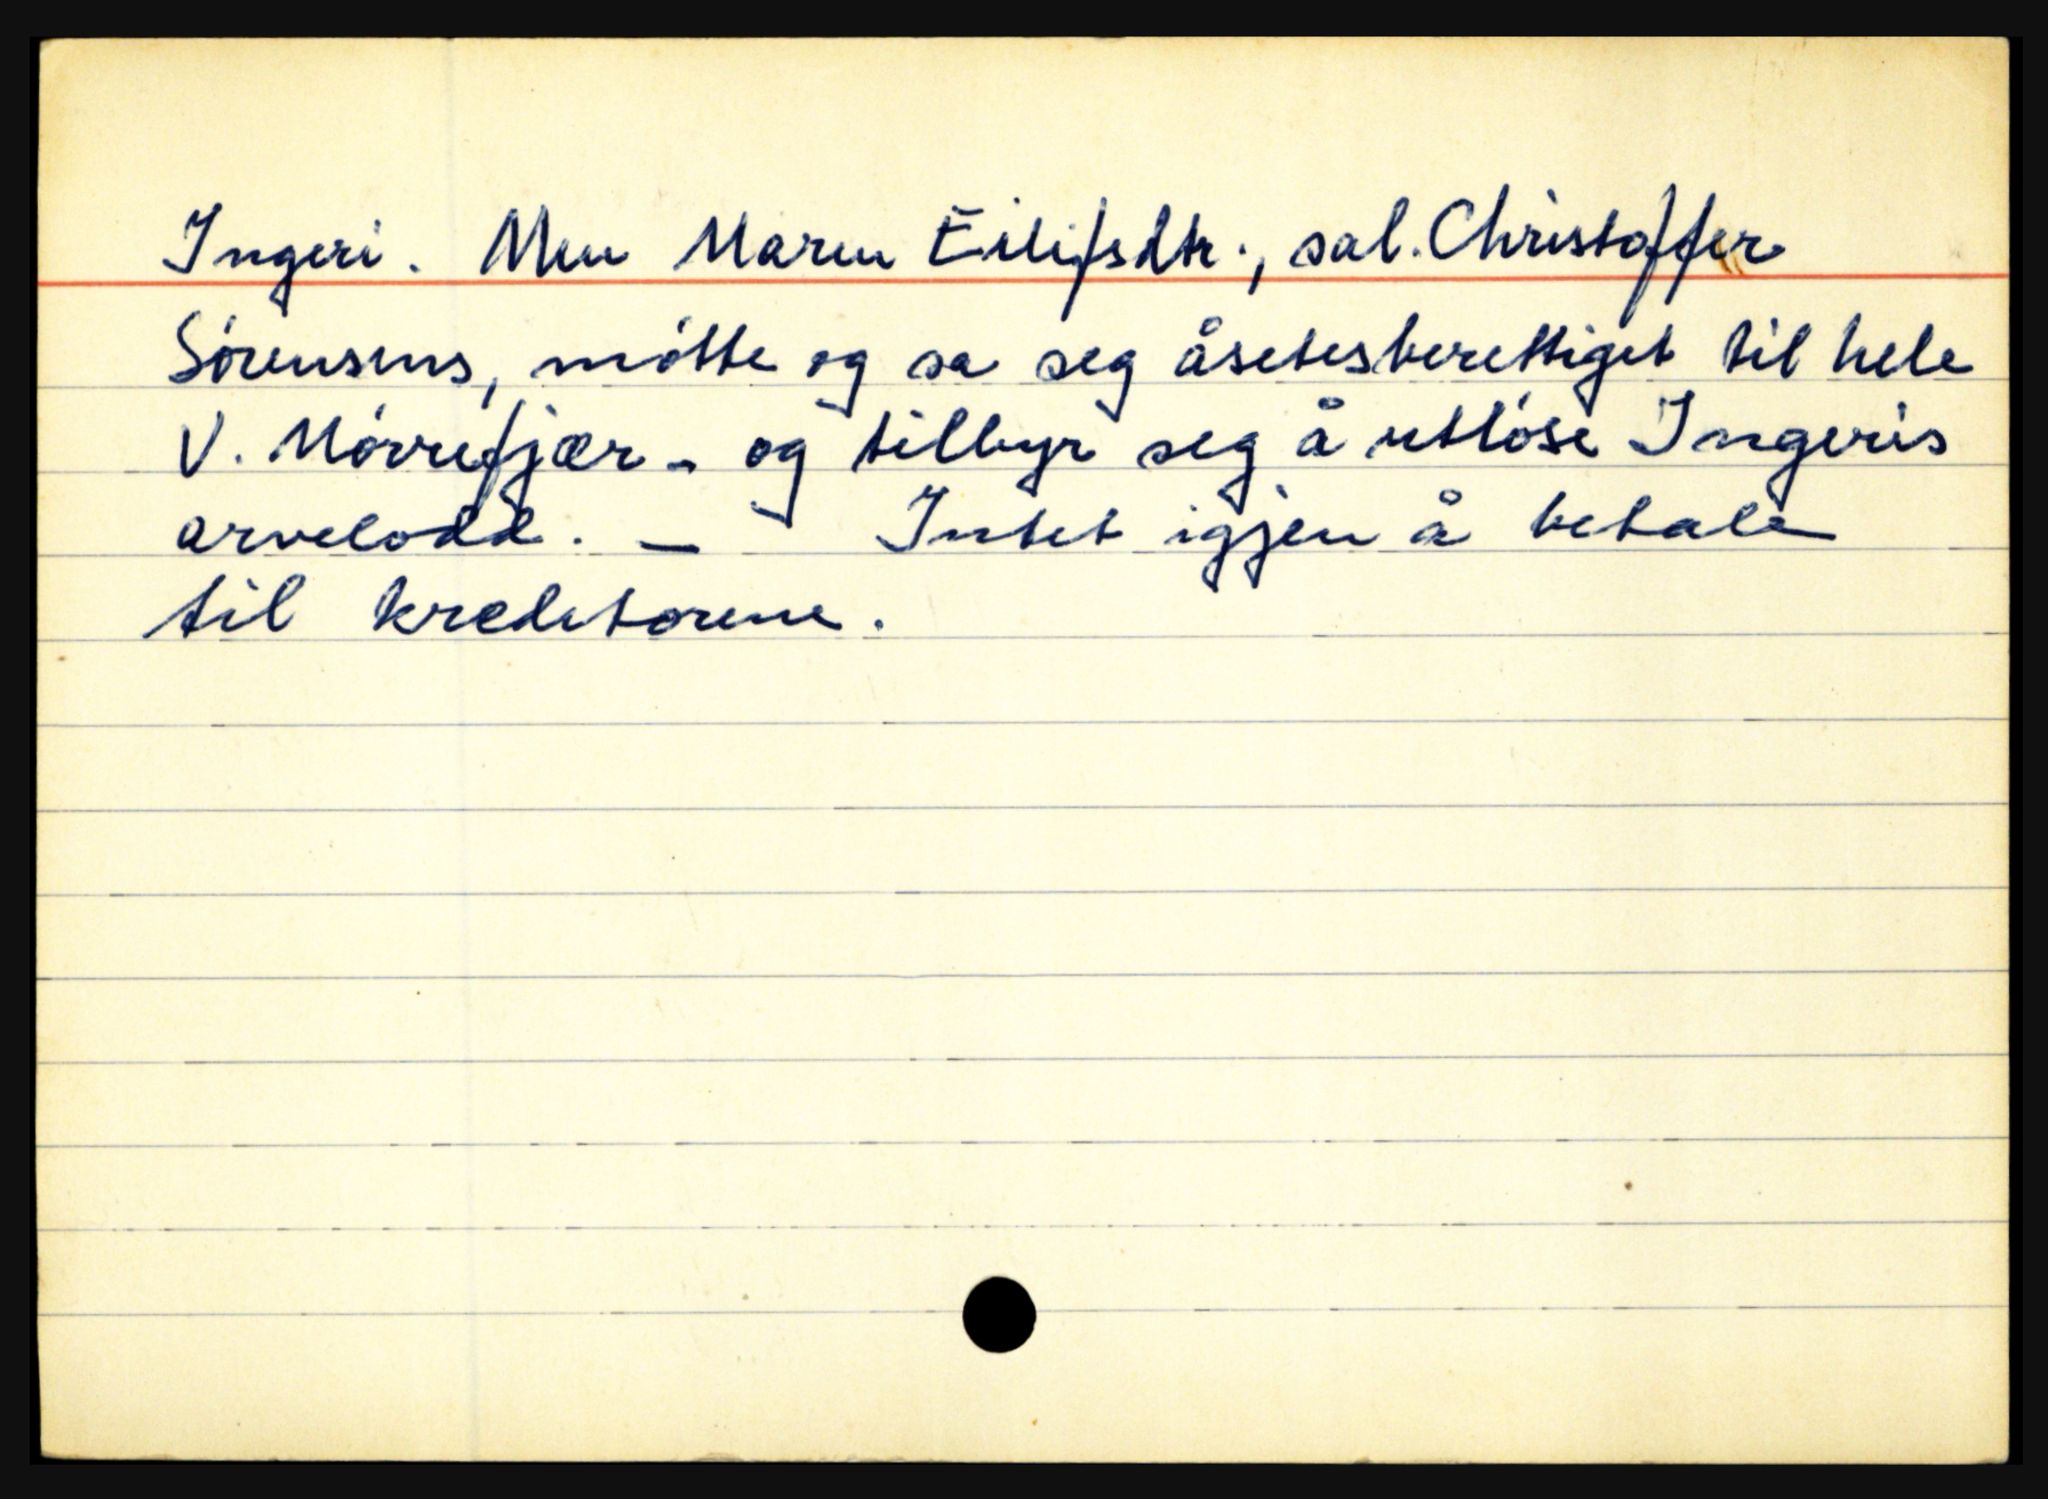 Ingeri. Men Maren Eilifsdtr., sal. Christoffer
Sórensens, mótte og sa seg åsetesberettiget til hele
V. Mórrefjær - og tilbyr seg å utlóse Ingeris
arvelodd. — Intet igjen å betale
til kreditorene.